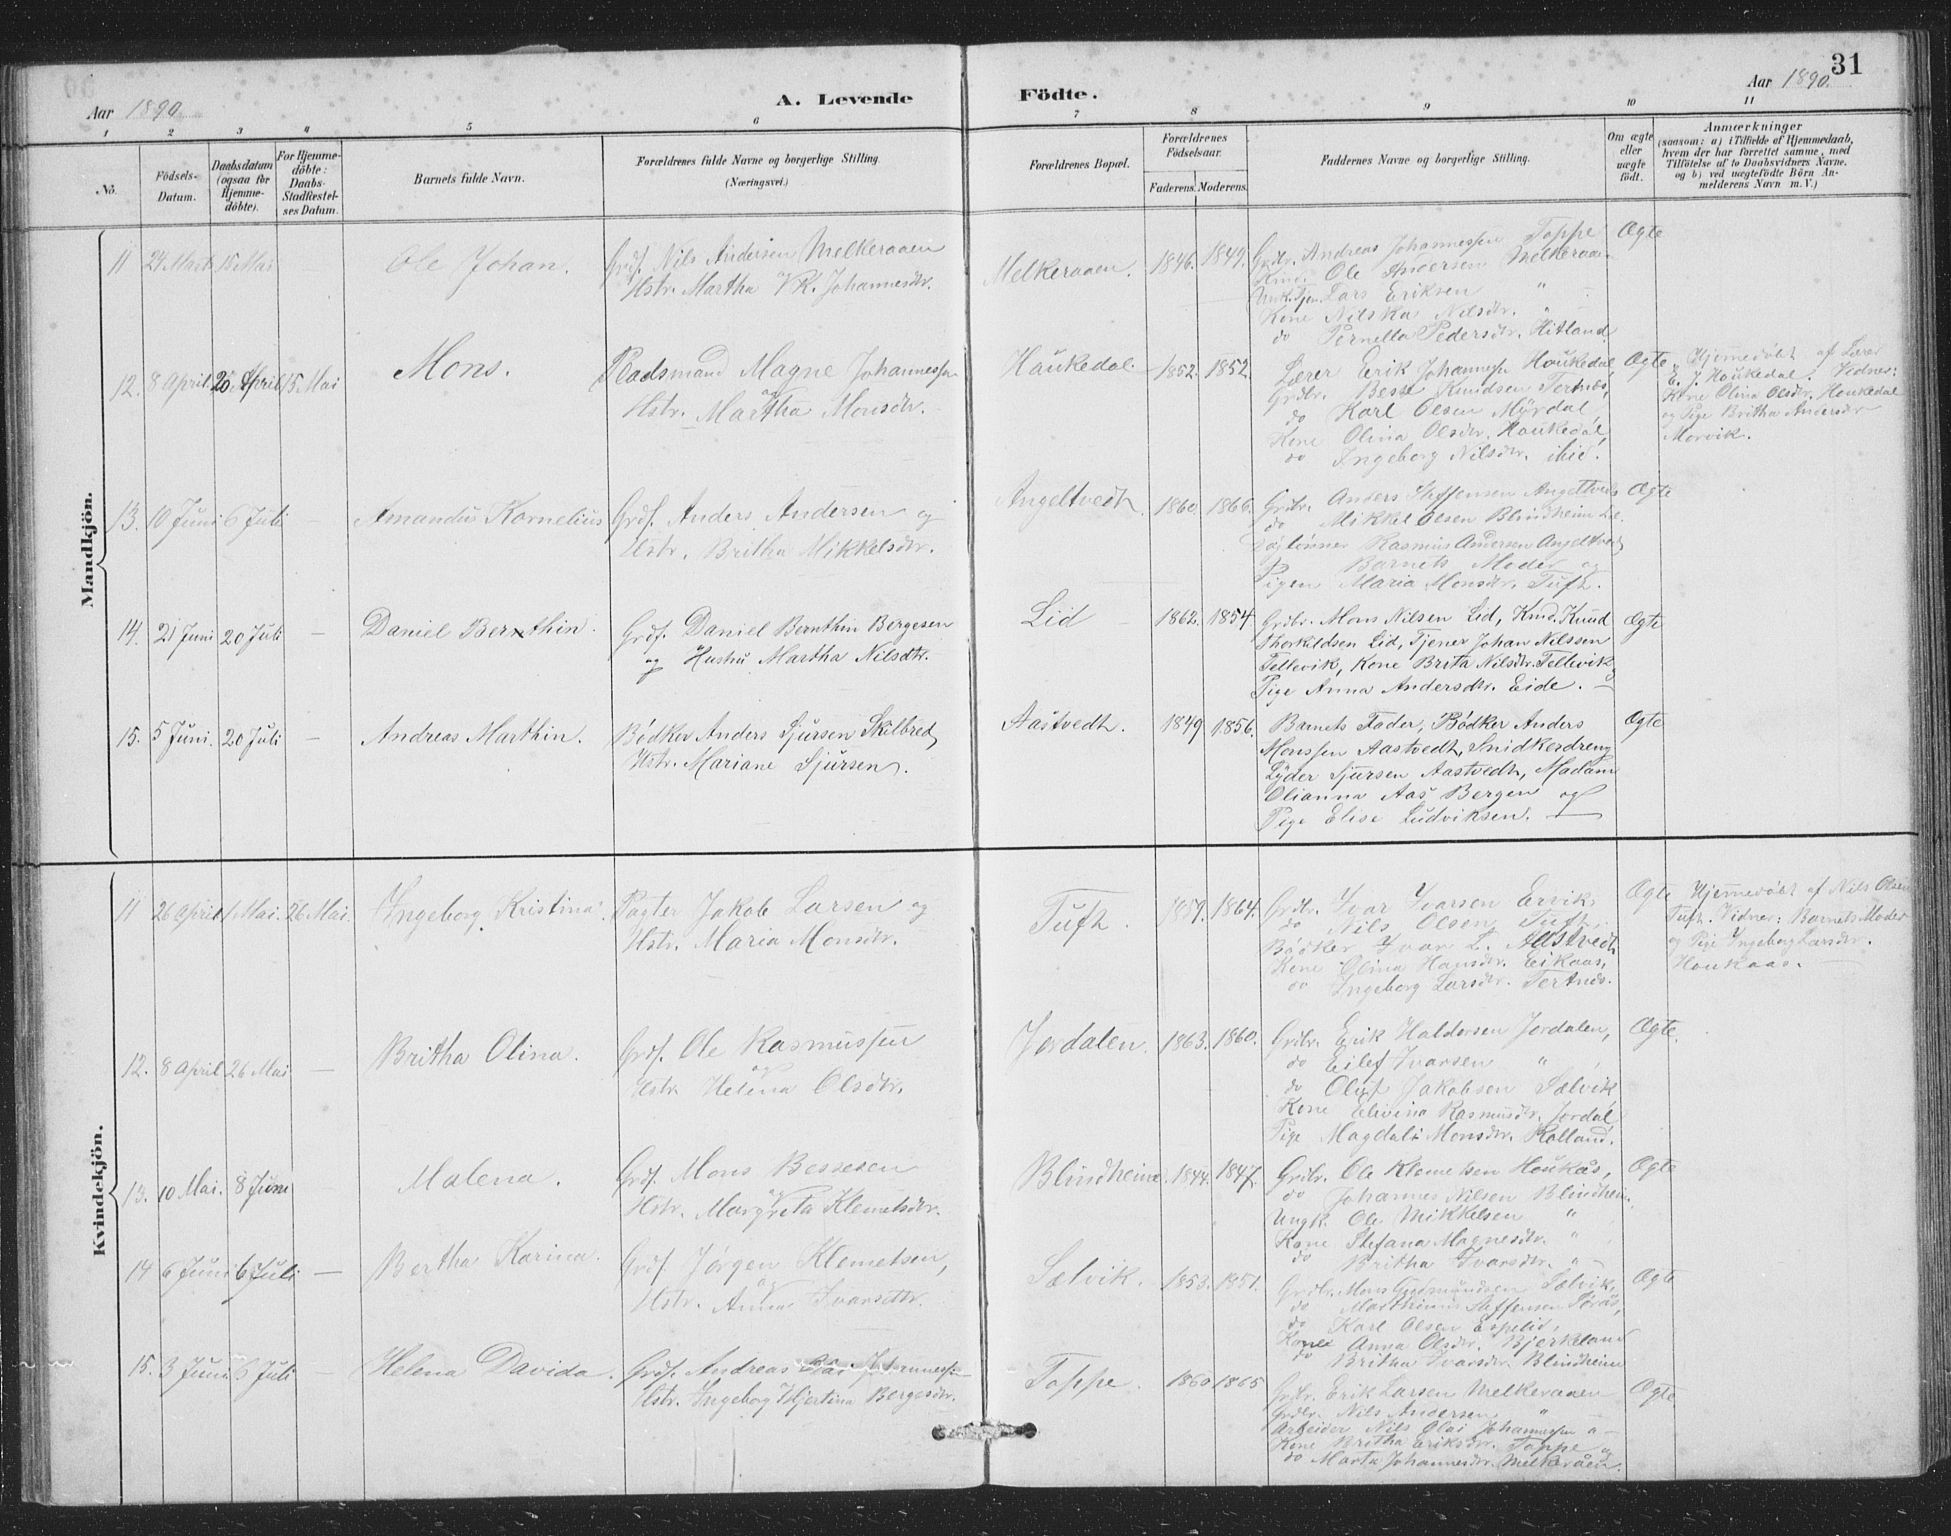 31
Aar 1890
A. Levende Födte.
Aar 1890.
1 2 3 4 5 6 7 8 9 10 11
No.
Födsels-
Datum.
Daabsdatum
(ogsaa for
Hjemme-
döbte).
For Hjemme-
döbte:
Daabs-
Stadfæstel-
ses Datum.
Barnets fulde Navn.
Forældrenes fulde Navne og borgerlige Stilling.
(Næringsvei.)
Forældrenes Bopæl.
Forældrenes
Födselsaar.
Faderens. Moderens.
Faddernes Navne og borgerlige Stilling.
Om ægte
eller
uægte
födt.
Anmærkninger
(saasom: a) i Tilfælde af Hjemmedaab,
hvem der har forrettet samme, med
Tilföielse af to Daabsvidners Navne,
og b) ved uægtefödte Börn An-
melderens Navn m. V.)
Mandkjön.
11 24 Marts 15 Mai
Ole Johan.
Grdf. Nils Andersen Melkeraaen
Hstr. Martha VK. Johannesdtr.
Melkeraaen. 1846. 1849.
Grdbr. Andreas Johannessen Toppe
Ole Andersen Melkeraaen
Ungk. Tjen. Lars Eriksen "
Kone Nilska Nilsdtr.
do Pernella Pedersdtr. Hitland.
Ægte
12. 8 April 20 April 15. Mai
Mons.
Pladsmand Magne Johannessen
og
Hstr. Martha Monsdtr.
Haukedal. 1852. 1852.
Lærer Erik Johannessen Houkedal,
Grdbr. Besse Knudsen Tertnæs,
do Karl Olsen Myrdal,
Kone Olina Olsdtr. Haukedal,
do Ingeborg Nilsdtr. ibid.
Ægte
Hjemmedöbt af Lærer
E. J. Houkedal. Vidner:
Kone Olina Olsdtr. Houkedal
og Pige Britha Andersdtr
Morvik.
13. 10 Juni 6 Juli —
Amandus Kornelius
Grdf. Anders Andersen og
Hstr. Britha Mikkelsdtr.
Angeltvedt 1860 1866.
Grdbr. Anders Steffensen Angeltvedt
do Mikkel Olsen Blindheim
Rasmus Andersen Angeltvedt,
Barnets Moder og
Pigen Maria Monsdtr. Tuft.
Ægte
14. 21 Juni 20 Juli —
Daniel Bernthin.
Grdf. Daniel Bernthin Bergesen
og Hustru Martha Nilsdtr.
Lid 1862. 1854.
Grdbr. Mons Nilsen Lid, Kmd. Knud
Thorkildsen Lid, Tjener Johan Nilssen
Tellevik, Kone Brita Nilsdtr. Tellevik,
Pige Anna Andersdtr. Eide. —
Ægte
15. 5 Juni. 20 Juli —
Andreas Marthin.
Bødker Anders Sjursen Skilbred,
Hstr. Mariane Sjursen.
Aastvedt. 1849 1856.
Barnets Fader, Bödker Anders
Monssen Aastvedt, Snidkerdreng
Lyder Sjursen Aastvedt, Madam
Olianna Aas Bergen og
Pige Elise Ludviksen. —
Ægte
Kvindekjön.
11 26 April 1 Mai. 26 Mai.
Ingeborg Kristina.
Pagter Jakob Larsen og
Hstr. Maria Monsdtr.
Tuft. 1857. 1864.
Grdbr. Ivar Ivarsen Eervik,
do Nils Olsen Tuft,
Bödker Ivar L. Aastvedt
Kone Olina Hansdtr. Eikaas,
do Ingeborg Larsdtr. Tertnæs.
Ægte
Hjemmedöbt af Nils Olsen
Tuft. Vidner: Barnets Moder
og Pige Ingeborg Larsdtr.
Houkaas. —
12. 8 April 26 Mai —
Britha Olina.
Grdf. Ole Rasmussen
og
Hstr. Helena Olsdtr.
Jordalen. 1863. 1860.
Grdbr. Erik Haldorsen Jordalen,
do Eilef Ivarsen "
do Oluf Jakobsen Sælvik
Kone Elivina Rasmusdtr. Jordal
Pige Magdali Monsdtr. Kalland.
Ægte.
13. 10 Mai. 8 Juni —
Malena.
Grdf. Mons Bessesen
og
Hstr. Margreta Klemetsdtr.
Blindheim. 1844. 1847.
Grdbr. Ole Klemetsen Houkås,
do Johannes Nilsen Blindheim,
Ungk. Ole Mikkelsen "
Kone Stefana Magnesdtr. "
do Britha Ivarsdtr. " —
Ægte
14 6 Juni 6 Juli —
Bertha Karina.
Grdf. Jørgen Klemetsen,
og
Hstr. Anna Ivarsdtr.
Sælvik. 1853. 1851.
Grdbr. Mons Gudmundsen Sælvik,
do Marthinus Steffensen
do Karl Olsen Espelid,
Kone Anna Olsdtr. Bjerkeland
do Britha Ivarsdtr. Blindheim
Ægte
15. 3 Juni 6 Juli —
Helena Davida.
Grdf. Andreas Johannessen
Hstr. Ingeborg Hjertina Børgesdtr.
Toppe. 1860 1865
Grdbr. Erik Larsen Melkeraaen
Grdbr. Nils Andersen "
Arbeider Nils Olai Johannessen
Kone Britha Eriksdtr. Toppe og
do Marta Johannesdtr. Melkeråen.
Ægte